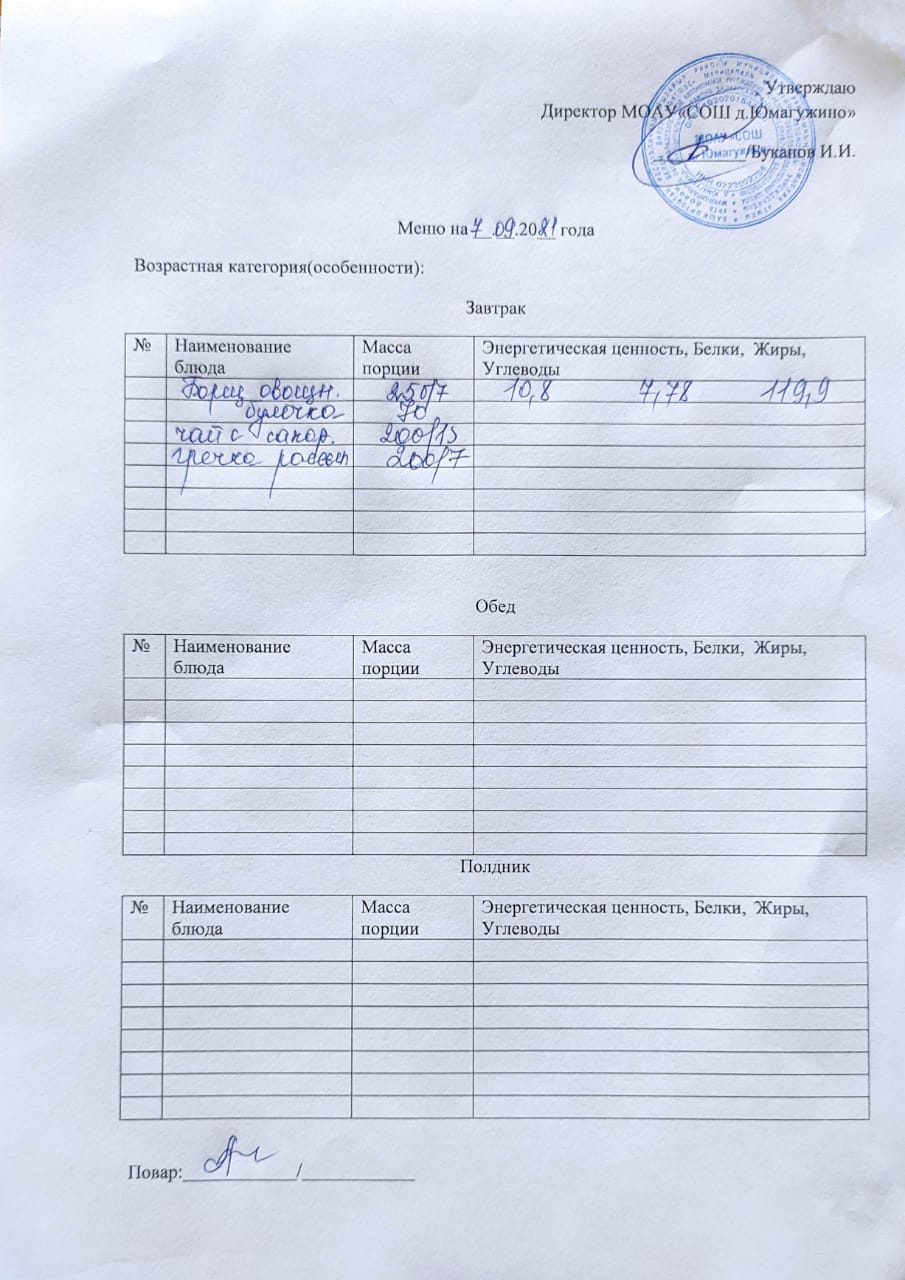 Утверждаю
Директор МОАУ«СОШ д.Юмагужино»
/Буканов И.И.
МОАУ «СОШ
Меню на 7 .09.2021 года
Возрастная категория(особенности):
Завтрак
№ Наименование блюда Масса порции Энергетическая ценность, Белки, Жиры, Углеводы
Борщ овощн. 250/7 10,8 7,78 119,9
булочка 70
чай с сахар. 200/15
гречка рассып 200/7
Обед
№ Наименование блюда Масса порции Энергетическая ценность, Белки, Жиры, Углеводы
Полдник
№ Наименование блюда Масса порции Энергетическая ценность, Белки, Жиры, Углеводы
Повар:____________/____________